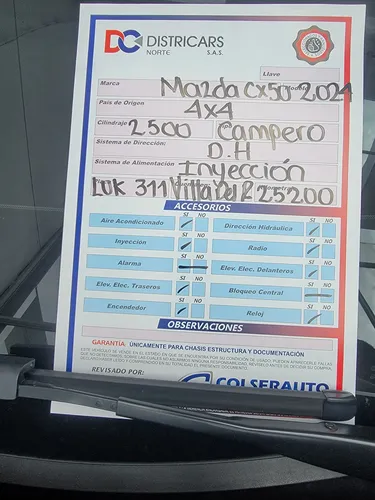 DC DISTRICARS
NORTE S.A.S.
Llave
Marca Mazda CX50 2024
Pais de Origen 4x4
Cilindraje 2500 Campero
Sistema de Dirección: D.H
Sistema de Alimentación Inyección
LUK 311 Villa del R 25200
ACCESORIOS
SI NO SI NO
Aire Acondicionado Dirección Hidráulica
SI NO SI NO
Inyección Radio
SI NO SI NO
Alarma Elev. Elec. Delanteros
SI NO SI NO
Elev. Elec. Traseros Bloqueo Central
SI NO SI NO
Encendedor Reloj
OBSERVACIONES
GARANTÍA: ÚNICAMENTE PARA CHASIS ESTRUCTURA Y DOCUMENTACIÓN
REVISADO POR: COLSERAUTO